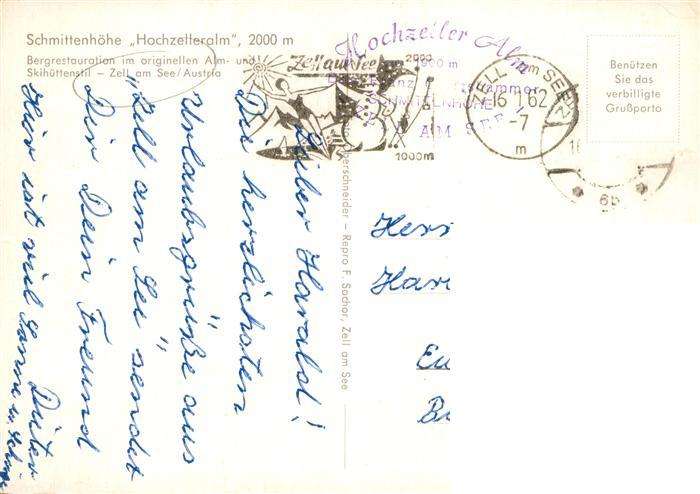 Schmittenhöhe „Hochzelleralm", 2000 m
Bergrestauration im originellen Alm- und
Skihüttenstil – Zell am See/Austria
Zell am See
2000
1000m
Hochzeller Alm
SCHMITTENHÖHE
AM SEE
ZELL am SEE
16.1.62
-7
m
6b
Benützen
Sie das
verbilligte
Grußporto
Repro F. Sochor, Zell am See
Lieber Harald!
Die herzlichsten
Urlaubsgrüße aus
„Zell am See" sendet
Dir Dein Freund
Dieter
Hier ist viel Sonne u.
Herr
Har
Eu